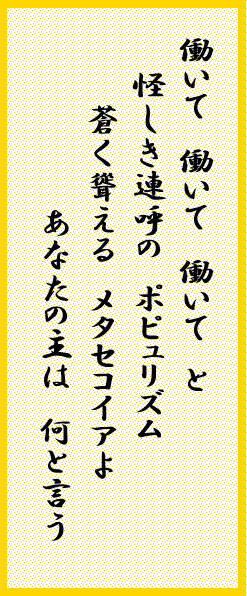 働いて 働いて 働いて と
怪しき連呼の ポピュリズム
蒼く聳える メタセコイアよ
あなたの主は 何と言う